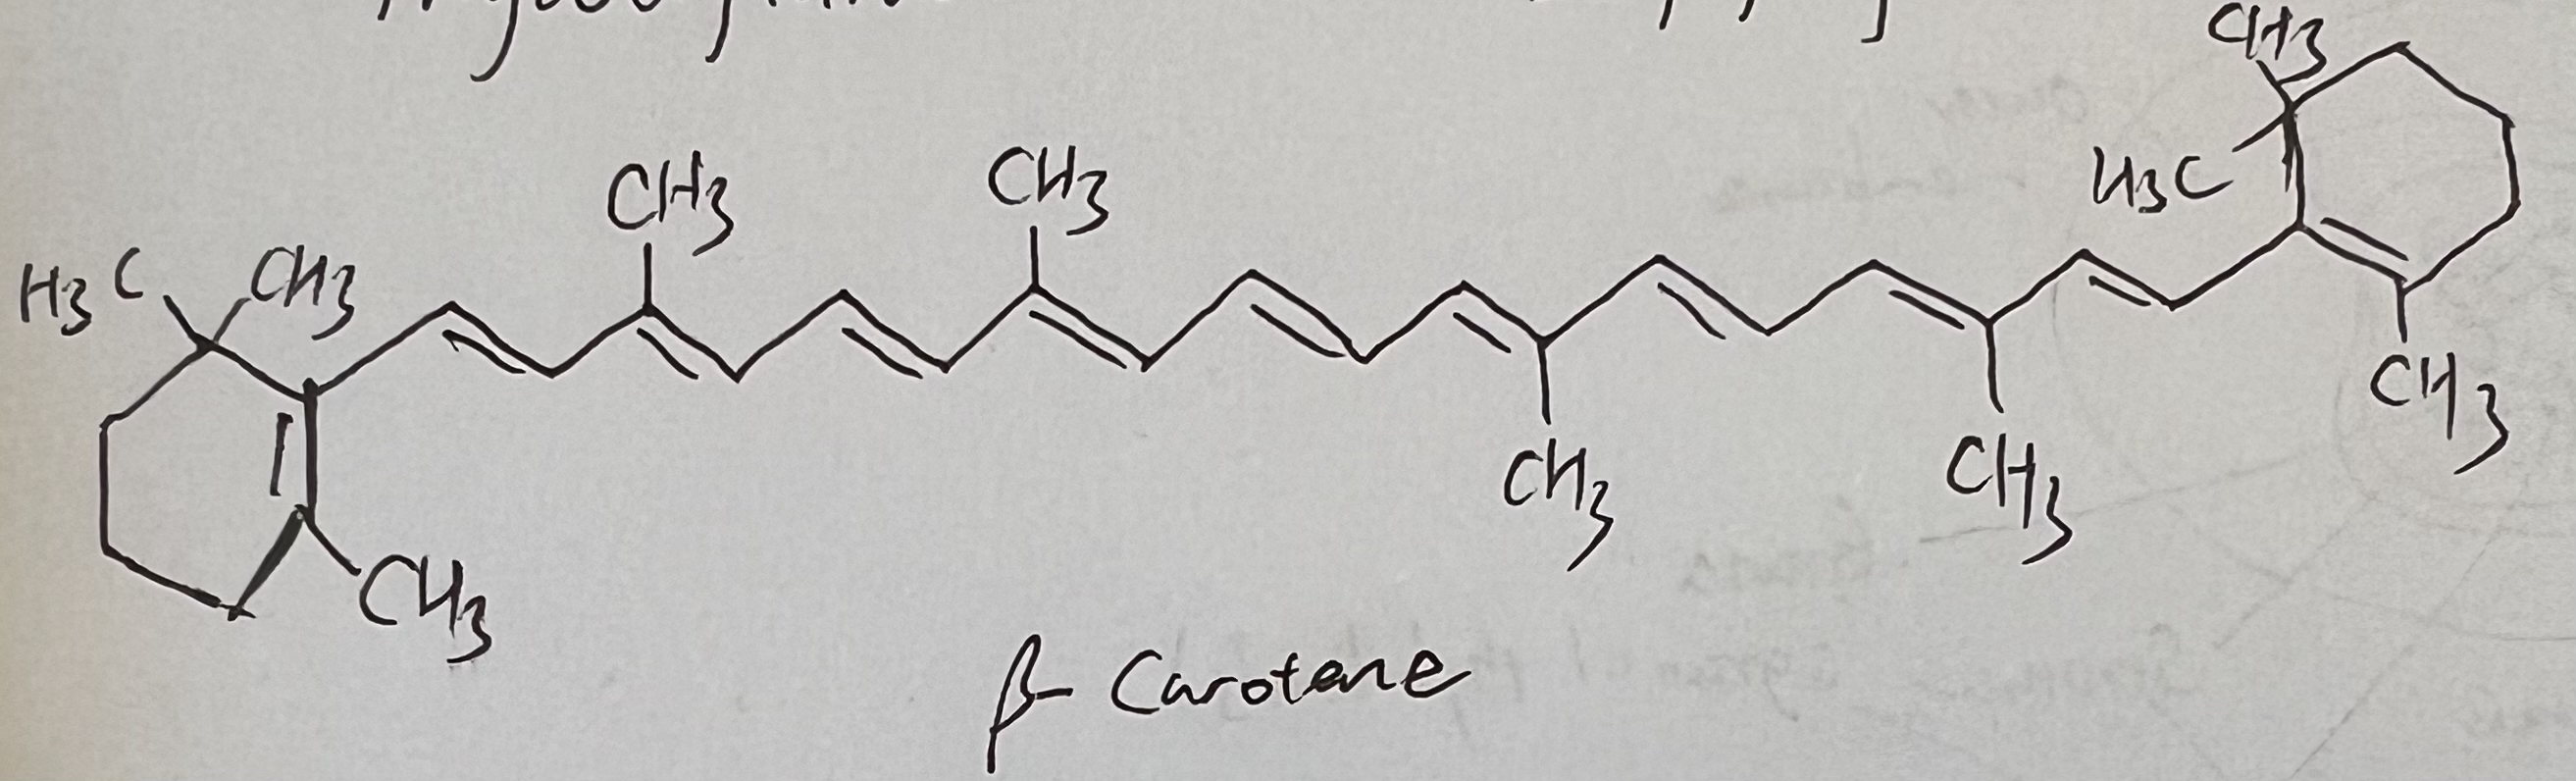 CH3
CH3
CH3
H3C
H3C CH3
CH3
CH3
CH3
CH3
CH3
β- Carotene